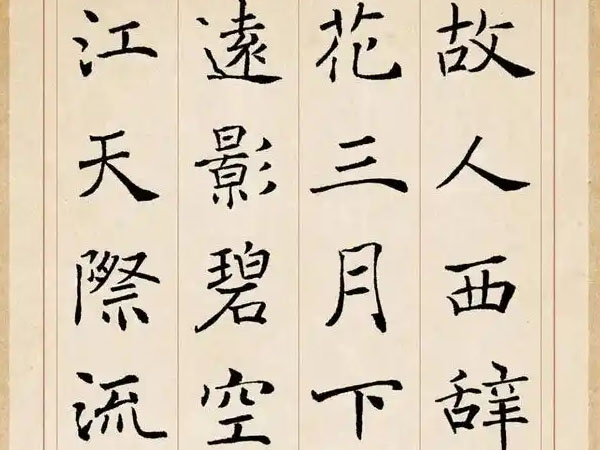 故人西辞
花三月下
遠影碧空
江天際流